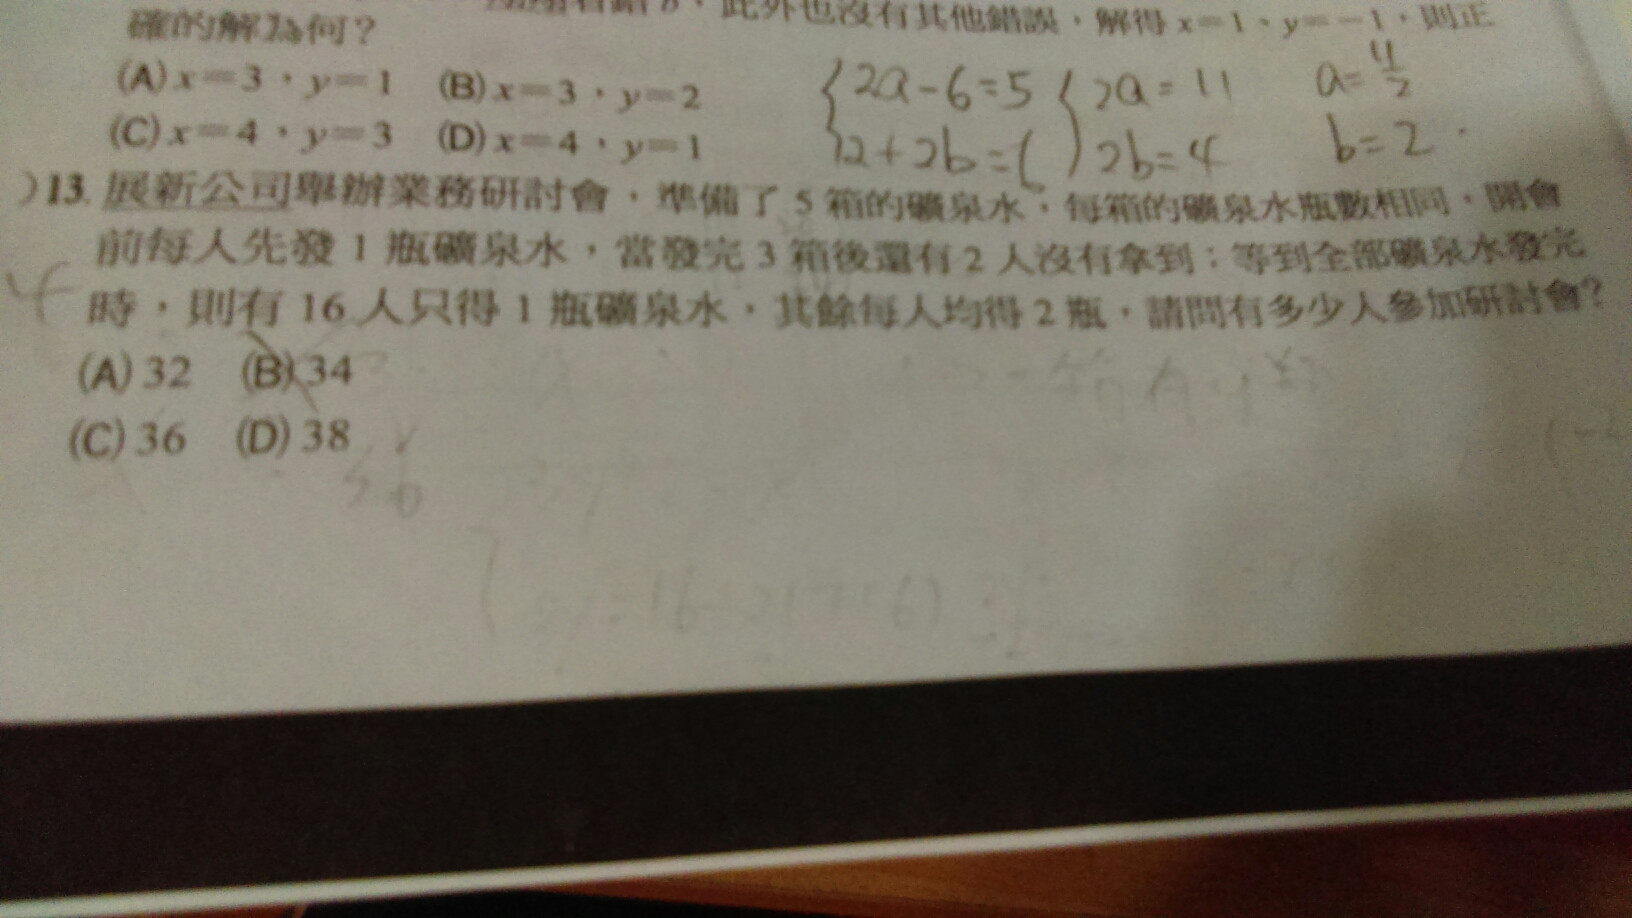 看錯 b,此外也沒有其他錯誤,解得 x=1、y=-1,則正
確的解為何?
(A) x=3,y=1 (B) x=3,y=2
(C) x=4,y=3 (D) x=4,y=1
2a-6=5 2a=11 a=11/2
12+2b= 2b=4 b=2
)13. 展新公司舉辦業務研討會,準備了 5 箱的礦泉水,每箱的礦泉水瓶數相同,開會
前每人先發 1 瓶礦泉水,當發完 3 箱後還有 2 人沒有拿到;等到全部礦泉水發完
時,則有 16 人只得 1 瓶礦泉水,其餘每人均得 2 瓶,請問有多少人參加研討會?
(A) 32 (B) 34
(C) 36 (D) 38